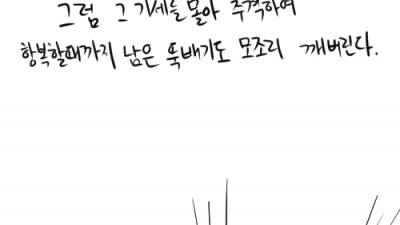 그럼 그 기세를 몰아 추격하여
항복할때까지 남은 뚝배기도 모조리 깨버린다.